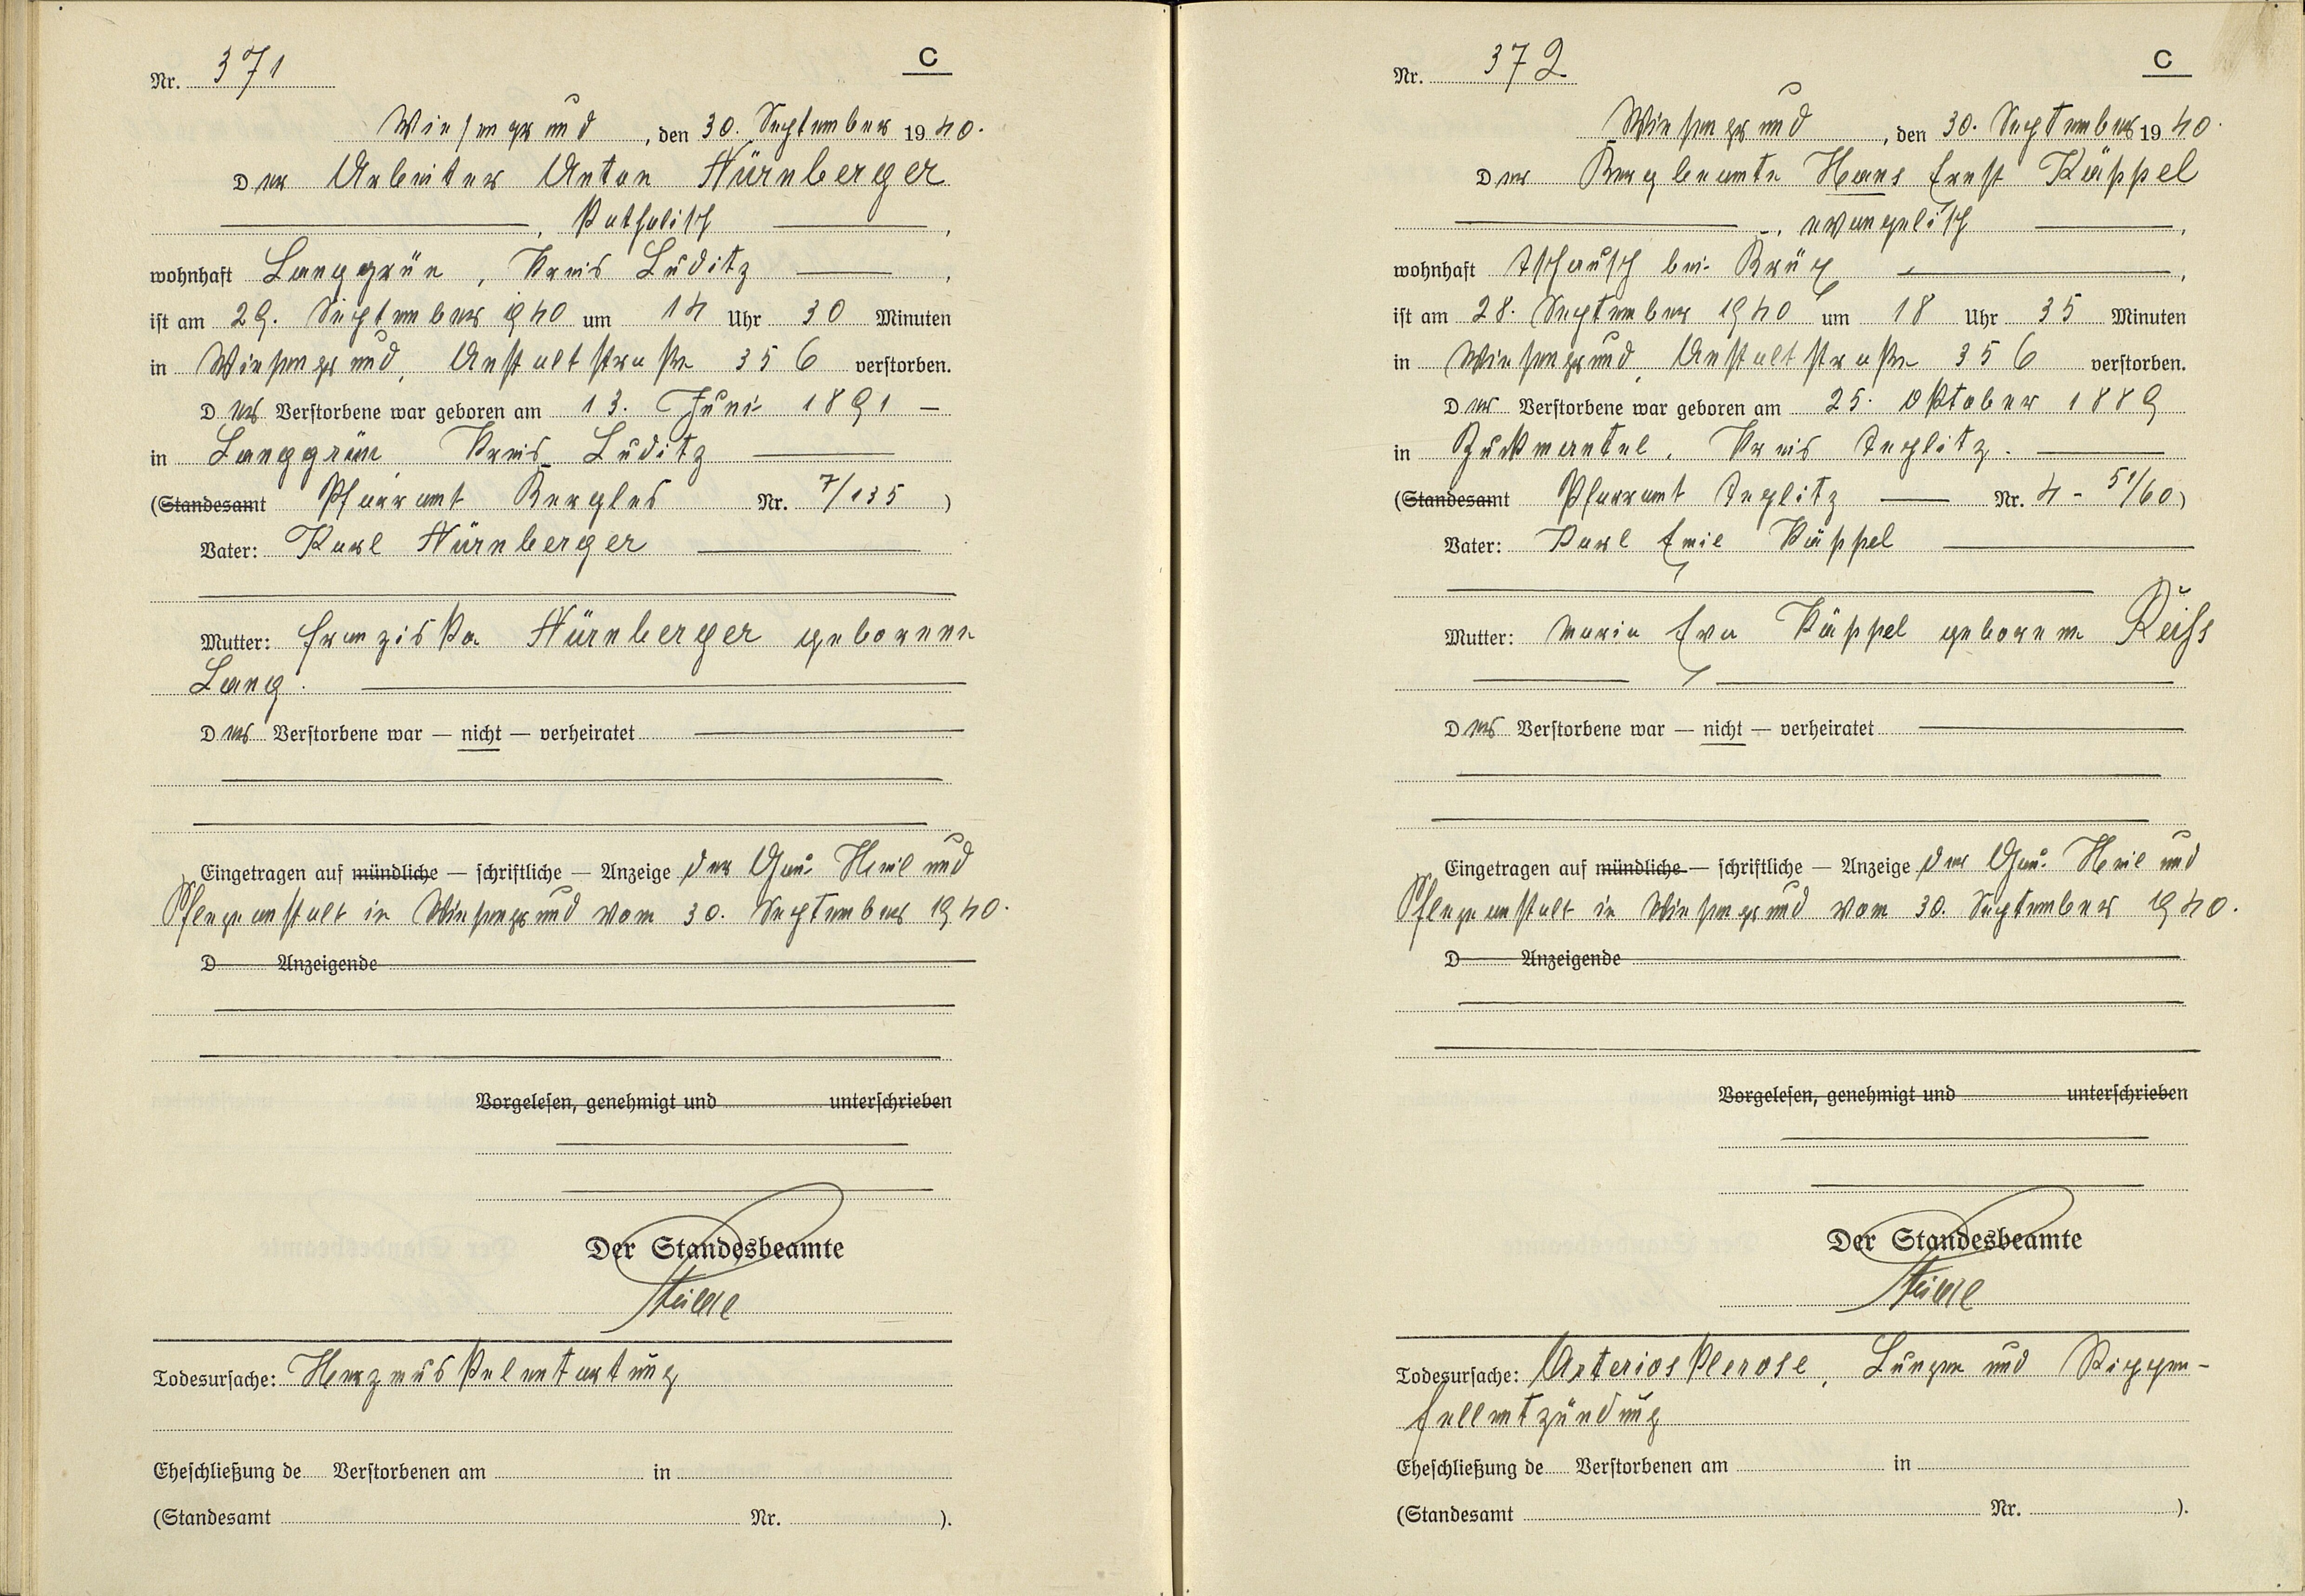 Nr. 371
C
Wiesengrund, den 30. September 1940.
Der Arbeiter Anton Nürnberger
, katholisch ,
wohnhaft Langgrün, Kreis Luditz ,
ist am 29. September 1940 um 14 Uhr 30 Minuten
in Wiesengrund, Anstaltstraße 356 verstorben.
Der Verstorbene war geboren am 13. Juni 1891
in Langgrün Kreis Luditz
(Standesamt Pfarramt Bergles Nr. 7/135)
Vater: Karl Nürnberger
Mutter: Franziska Nürnberger geborene
Lang.
Der Verstorbene war — nicht — verheiratet
Eingetragen auf mündliche — schriftliche — Anzeige der Gau-Heil und
Pflegeanstalt in Wiesengrund vom 30. September 1940.
D Anzeigende
Vorgelesen, genehmigt und unterschrieben
Der Standesbeamte
Todesursache: Herzmuskelentartung
Eheschließung de Verstorbenen am in
(Standesamt Nr. ).
Nr. 372
C
Wiesengrund, den 30. September 1940.
Der Bergbeamte Hans Ernst Käppel
, evangelisch ,
wohnhaft Tschausch bei Brüx ,
ist am 28. September 1940 um 18 Uhr 35 Minuten
in Wiesengrund, Anstaltstraße 356 verstorben.
Der Verstorbene war geboren am 25. Oktober 1889
in Zuckmantel, Kreis Teplitz.
(Standesamt Pfarramt Teplitz Nr. 4 - 51/60)
Vater: Karl Emil Käppel
Mutter: Maria Eva Käppel geborene Reiß
Der Verstorbene war — nicht — verheiratet
Eingetragen auf mündliche — schriftliche — Anzeige der Gau-Heil und
Pflegeanstalt in Wiesengrund vom 30. September 1940.
D Anzeigende
Vorgelesen, genehmigt und unterschrieben
Der Standesbeamte
Todesursache: Arteriosklerose, Lungen und Rippen-
fellentzündung
Eheschließung de Verstorbenen am in
(Standesamt Nr. ).